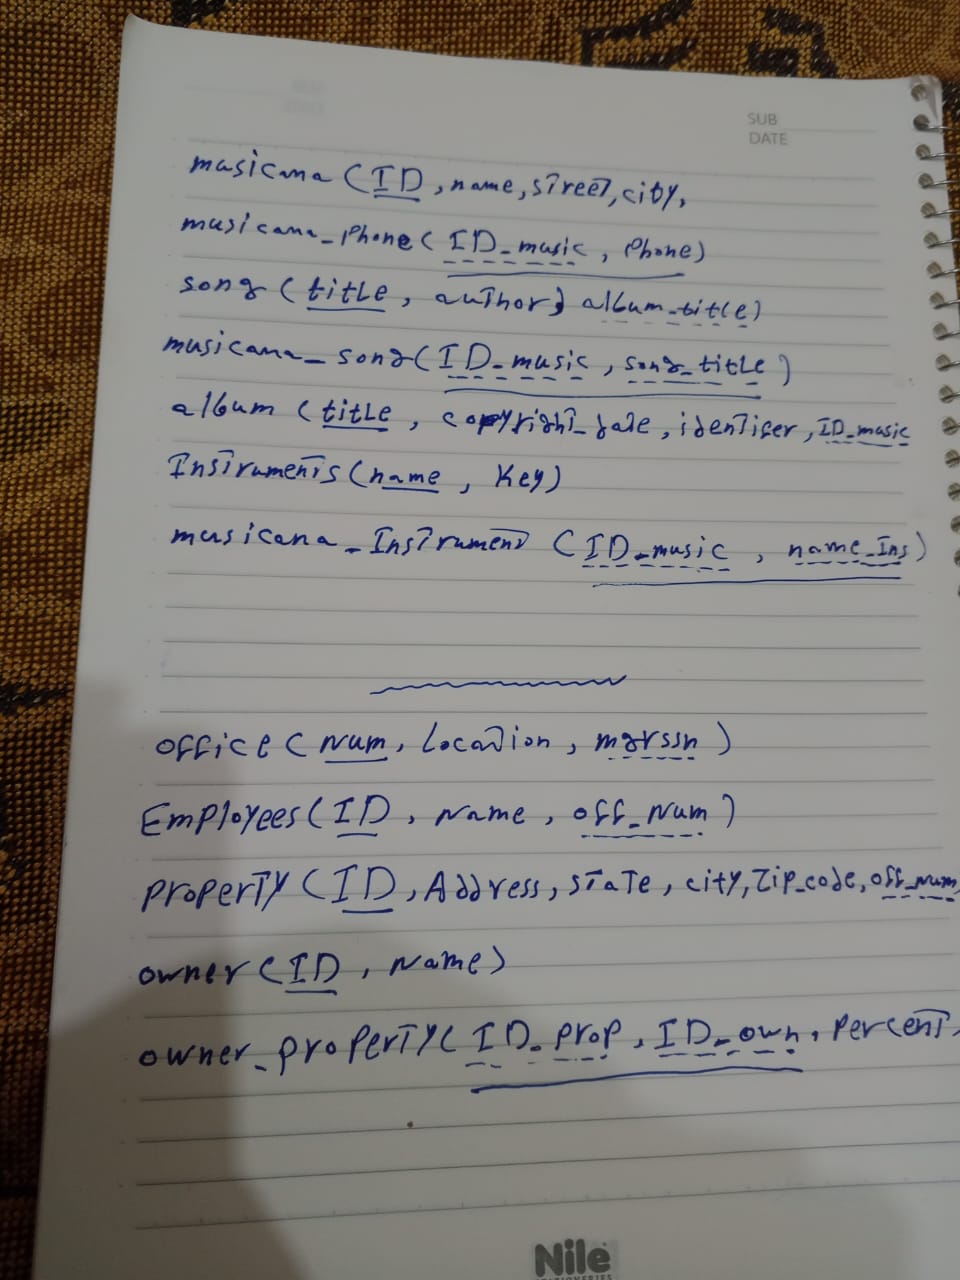 SUB
DATE
musicana (ID, name, street, city,
musicana_Phone (ID_music, Phone)
song (title, author, album_title)
musicana_song (ID_music, song_title)
album (title, copyright_date, identifer, ID_music
Instruments (name, Key)
musicana_Instrument (ID_music, name_Ins)
office (Num, Location, mgrssn)
Employees (ID, Name, off_Num)
Property (ID, Address, state, city, Zip_code, off_num
owner (ID, Name)
owner_property (ID_prop, ID_own, Percent,
Nile